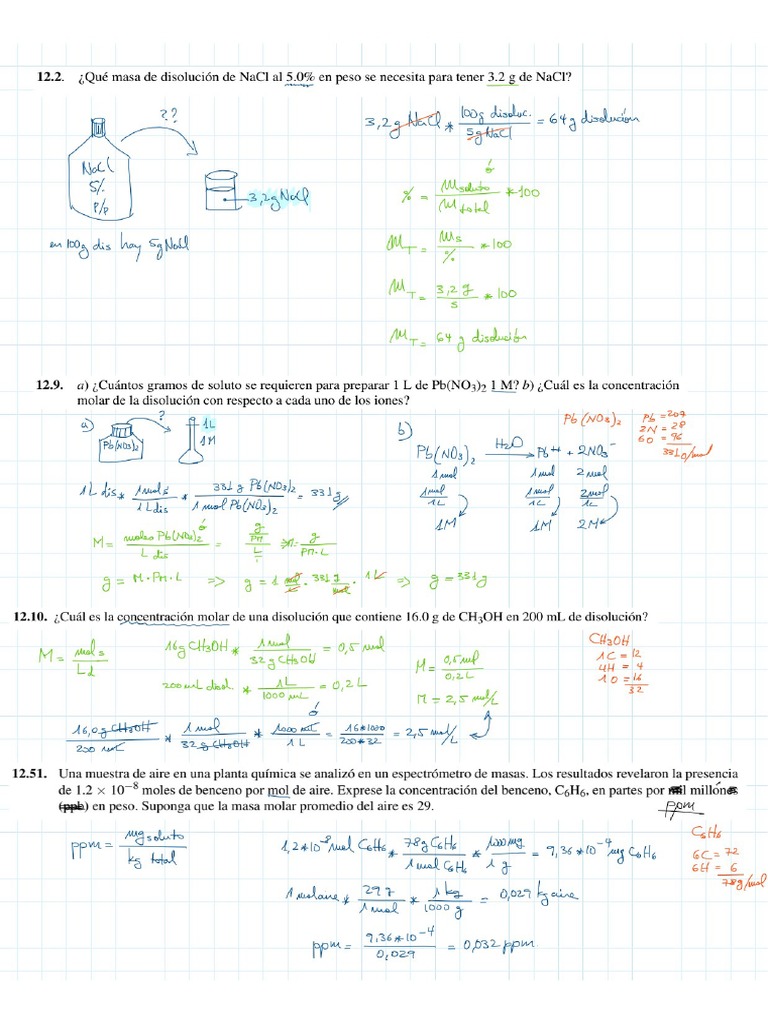 12.2. ¿Qué masa de disolución de NaCl al 5.0% en peso se necesita para tener 3.2 g de NaCl?
??
NaCl
5%
P/P
3,2g NaCl
en 100g dis hay 5g NaCl
3,2g NaCl * 100g disoluc. / 5g NaCl = 64 g disolución
ó
% = Msoluto / Mtotal * 100
M_T = Ms / % * 100
M_T = 3,2 g / 5 * 100
M_T = 64 g disolución
12.9. a) ¿Cuántos gramos de soluto se requieren para preparar 1 L de Pb(NO3)2 1 M? b) ¿Cuál es la concentración
molar de la disolución con respecto a cada uno de los iones?
a)
?
Pb(NO3)2
1L
1M
1L dis * 1 mols / 1L dis * 331 g Pb(NO3)2 / 1 mol Pb(NO3)2 = 331 g
ó
M = moles Pb(NO3)2 / L dis = g/PM / L = g / PM·L
g = M·PM·L => g = 1 mol/L · 331 g/mol · 1L => g = 331g
b)
Pb(NO3)2 H2O → Pb++ + 2NO3-
1mol 1mol 2mol
1mol/1L 1mol/1L 2mol/1L
1M 1M 2M
Pb(NO3)2
Pb = 207
2N = 28
6O = 96
331g/mol
12.10. ¿Cuál es la concentración molar de una disolución que contiene 16.0 g de CH3OH en 200 mL de disolución?
M = mols / Ld
16g CH3OH * 1mol / 32g CH3OH = 0,5 mol
200mL disol. * 1L / 1000 mL = 0,2L
M = 0,5mol / 0,2L
M = 2,5 mol/L
CH3OH
1C = 12
4H = 4
1O = 16
32
ó
16,0g CH3OH / 200 mL * 1mol / 32g CH3OH * 1000 mL / 1L = 16*1000 / 200*32 = 2,5 mol/L
12.51. Una muestra de aire en una planta química se analizó en un espectrómetro de masas. Los resultados revelaron la presencia
de 1.2 × 10−8 moles de benceno por mol de aire. Exprese la concentración del benceno, C6H6, en partes por mil millones
(ppb) en peso. Suponga que la masa molar promedio del aire es 29.
ppm
ppm = mg soluto / kg total
1,2*10-8 mol C6H6 * 78g C6H6 / 1mol C6H6 * 1000mg / 1g = 9,36*10-4 mg C6H6
1 mol aire * 29 g / 1mol * 1kg / 1000 g = 0,029 kg aire
ppm = 9,36*10-4 / 0,029 = 0,032 ppm
C6H6
6C = 72
6H = 6
78g/mol